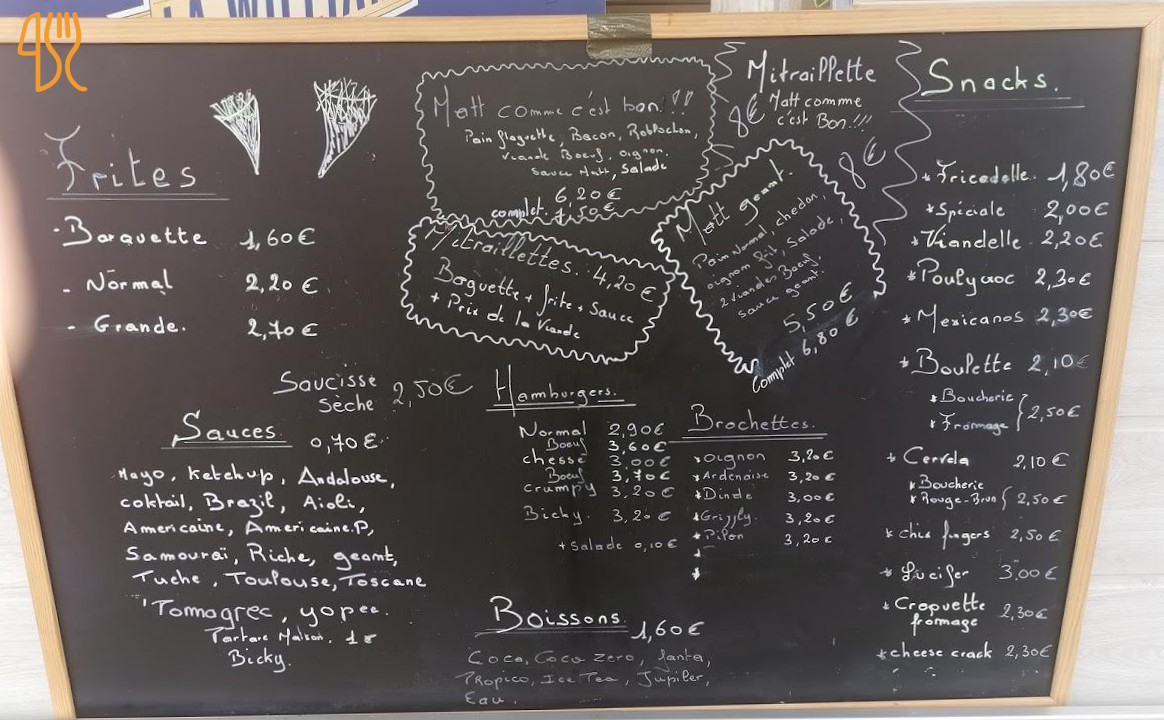 LA WILLI
Frites
- Barquette 1,60€
- Normal 2,20€
- Grande. 2,70€
Saucisse
Sèche 2,50€
Sauces 0,70€
Mayo, Ketchup, Andalouse,
coktail, Brazil, Aïoli,
Americaine, Americaine.P,
Samouraï, Riche, geant,
Tuche, Toulouse, Toscane
Tomagrec, yopee.
Tartare Maison. 1€
Bicky.
Matt comme c'est bon!!!
Pain flaguette, Bacon, Roblochon,
Viande Boeuf, oignon.
Sauce Matt, Salade
6,20€
complet. 7,50€
Mitraillettes. 4,20€
Baguette + frite + Sauce
+ Prix de la Viande
Mitraillette
Matt comme
c'est Bon!!!
8€
8€
Matt geant.
Pain Normal, chedon,
oignon frit, Salade,
2 Viandes Boeuf
sauce geant.
5,50€
Complet 6,80€
Hamburgers.
Normal 2,90€
Boeuf 3,60€
chesse 3,00€
Boeuf 3,70€
crumpy 3,20€
Bicky. 3,20€
+ Salade 0,10€
Brochettes.
* Oignon 3,20€
* Ardenaise 3,20€
* Dinde 3,00€
* Grizzly. 3,20€
* Pilon 3,20€
Boissons. 1,60€
Coca, Coca zero, fanta,
TRopico, Ice Tea, Jupiler,
Eau.
Snacks.
* Fricadelle. 1,80€
* Spéciale 2,00€
* Viandelle 2,20€
* Poulycroc 2,30€
* Mexicanos 2,30€
* Boulette 2,10€
* Boucherie
* Fromage 2,50€
* Cervela 2,10€
* Boucherie
* Rouge-Brun 2,50€
* chix fingers 2,50€
* Lucifer 3,00€
* Croquette
fromage 2,30€
* cheese crack 2,30€